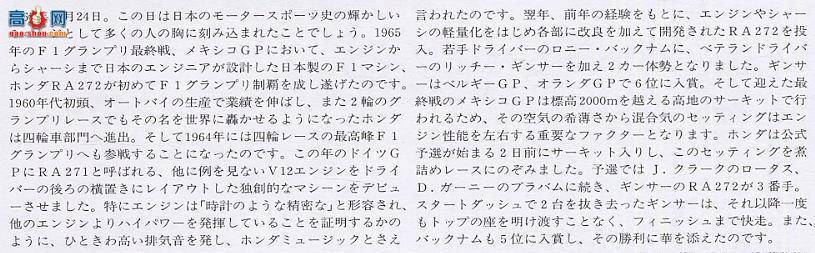 高
www.gao-shou.com
月24日。この日は日本のモータースポーツ史の輝かしい
として多くの人の胸に刻み込まれたことでしょう。1965
年のF1グランプリ最終戦、メキシコGPにおいて、エンジンか
らシャーシまで日本のエンジニアが設計した日本製のF1マシン、
ホンダRA272が初めてF1グランプリ制覇を成し遂げたのです。
1960年代初頭、オートバイの生産で業績を伸ばし、また2輪のグ
ランプリレースでもその名を世界に轟かせるようになったホンダ
は四輪車部門へ進出。そして1964年には四輪レースの最高峰F1
グランプリへも参戦することになったのです。この年のドイツG
PにRA271と呼ばれる、他に例を見ないV12エンジンをドライ
バーの後ろの横置きにレイアウトした独創的なマシーンをデビュ
ーさせました。特にエンジンは「時計のような精密な」と形容され、
他のエンジンよりハイパワーを発揮していることを証明するかの
ように、ひときわ高い排気音を発し、ホンダミュージックとさえ
言われたのです。翌年、前年の経験をもとに、エンジンやシャー
シの軽量化をはじめ各部に改良を加えて開発されたRA272を投
入。若手ドライバーのロニー・バックナムに、ベテランドライバ
ーのリッチー・ギンサーを加え2カー体勢となりました。ギンサ
ーはベルギーGP、オランダGPで6位に入賞。そして迎えた最
終戦のメキシコGPは標高2000mを越える高地のサーキットで行
われるため、その空気の希薄さから混合気のセッティングはエン
ジン性能を左右する重要なファクターとなります。ホンダは公式
予選が始まる2日前にサーキット入りし、このセッティングを煮
詰めレースにのぞみました。予選ではJ.クラークのロータス、
D.ガーニーのブラバムに続き、ギンサーのRA272が3番手。
スタートダッシュで2台を抜き去ったギンサーは、それ以降一度
もトップの座を明け渡すことなく、フィニッシュまで快走。また、
バックナムも5位に入賞し、その勝利に華を添えたのです。